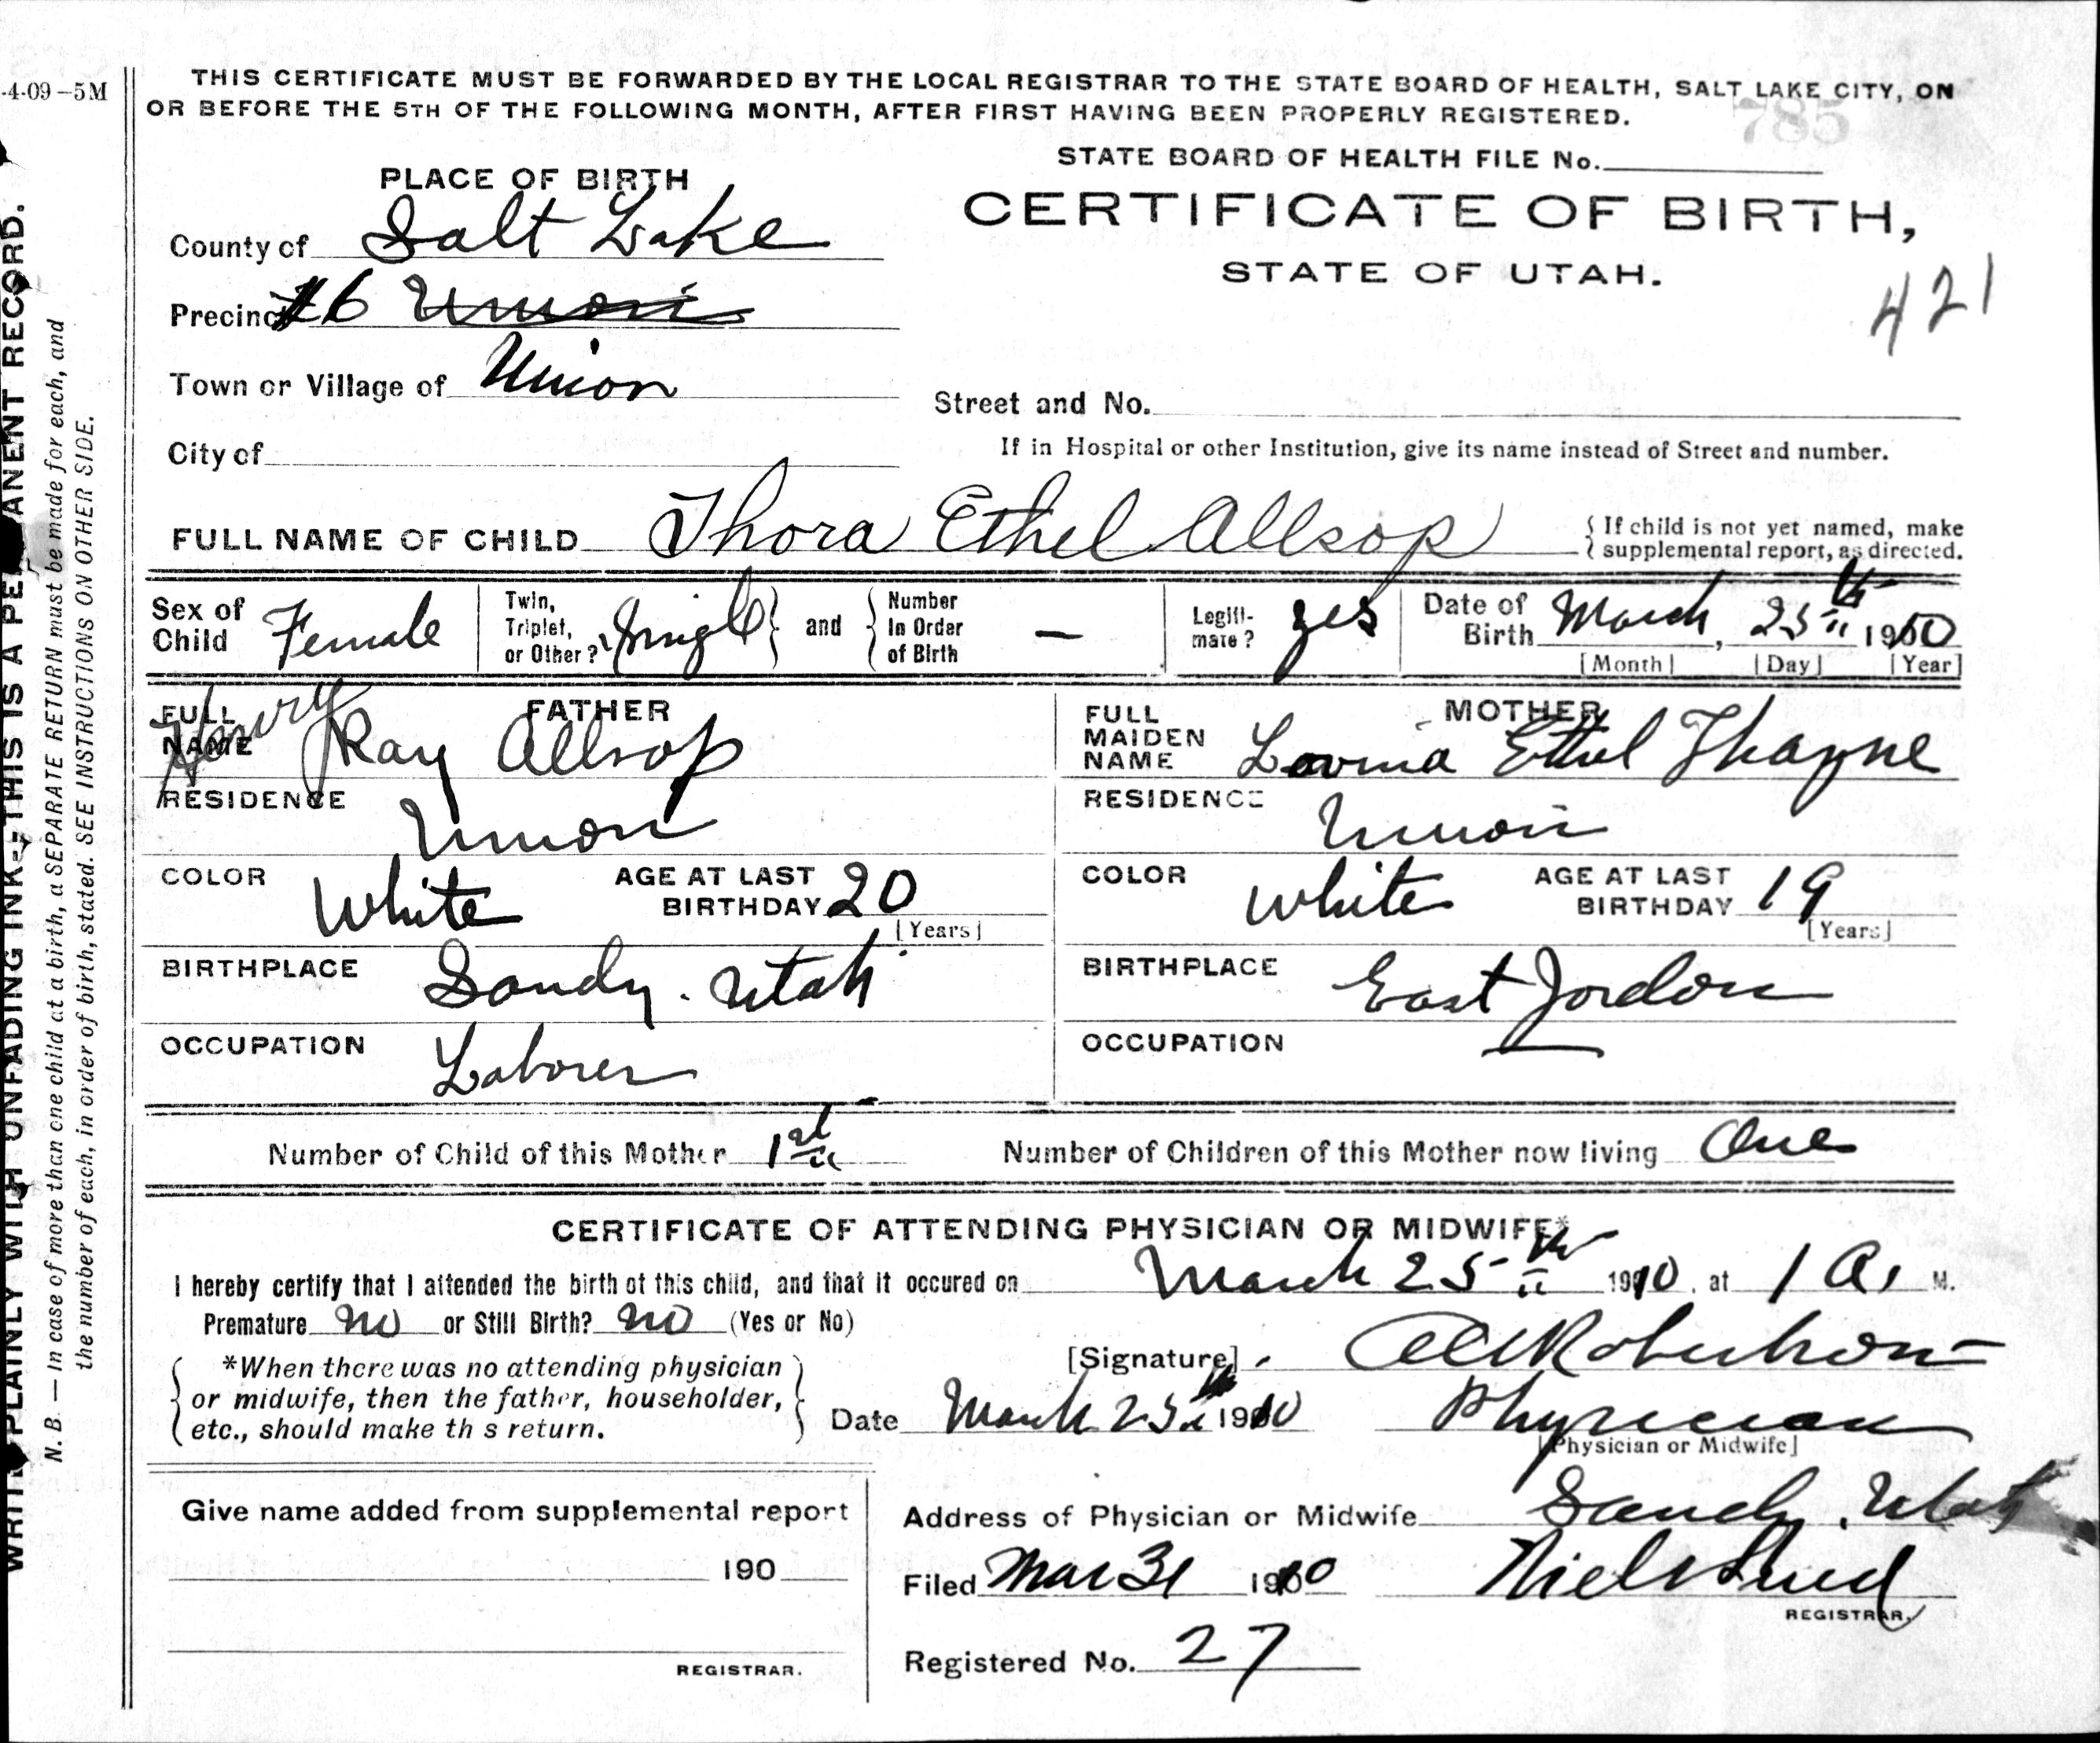 4-09-5M
THIS CERTIFICATE MUST BE FORWARDED BY THE LOCAL REGISTRAR TO THE STATE BOARD OF HEALTH, SALT LAKE CITY, ON
OR BEFORE THE 5TH OF THE FOLLOWING MONTH, AFTER FIRST HAVING BEEN PROPERLY REGISTERED.
785
STATE BOARD OF HEALTH FILE No.
PLACE OF BIRTH
CERTIFICATE OF BIRTH,
STATE OF UTAH.
421
County of Salt Lake
Precinct #6 Union
Town or Village of Union
Street and No.
City of
If in Hospital or other Institution, give its name instead of Street and number.
FULL NAME OF CHILD Thora Ethel Allsop
If child is not yet named, make
supplemental report, as directed.
Sex of Child Female
Twin, Triplet, or Other? Single and Number In Order of Birth —
Legiti-mate? yes
Date of Birth March, 25th 1910
[Month] [Day] [Year]
FATHER
FULL NAME Henry Ray Allsop
RESIDENCE Union
COLOR White AGE AT LAST BIRTHDAY 20
[Years]
BIRTHPLACE Sandy. Utah
OCCUPATION Laborer
MOTHER
FULL MAIDEN NAME Lovina Ethel Thayne
RESIDENCE Union
COLOR White AGE AT LAST BIRTHDAY 19
[Years]
BIRTHPLACE East Jordon
OCCUPATION —
Number of Child of this Mother 1st
Number of Children of this Mother now living One
CERTIFICATE OF ATTENDING PHYSICIAN OR MIDWIFE*
I hereby certify that I attended the birth of this child, and that it occured on March 25th 1910, at 1 A. M.
Premature no or Still Birth? no (Yes or No)
*When there was no attending physician
or midwife, then the father, householder,
etc., should make th s return.
[Signature] Robertson
Date March 25th 1910 Physician
[Physician or Midwife]
Give name added from supplemental report
190
REGISTRAR.
Address of Physician or Midwife Sandy, Utah
Filed Mar 31 1910 Niels Lind
REGISTRAR,
Registered No. 27
WRITE PLAINLY WITH UNFADING INK-THIS IS A PERMANENT RECORD.
N. B. — In case of more than one child at a birth, a SEPARATE RETURN must be made for each, and
the number of each, in order of birth, stated. SEE INSTRUCTIONS ON OTHER SIDE.